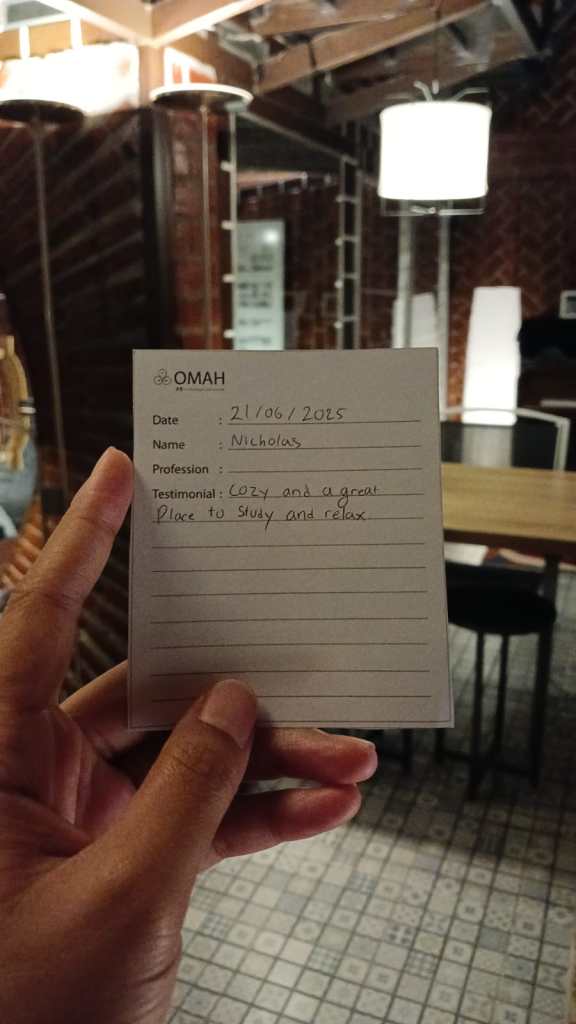 OMAH
Date : 21/06/2025
Name : Nicholas
Profession :
Testimonial : Cozy and a great
Place to study and relax.